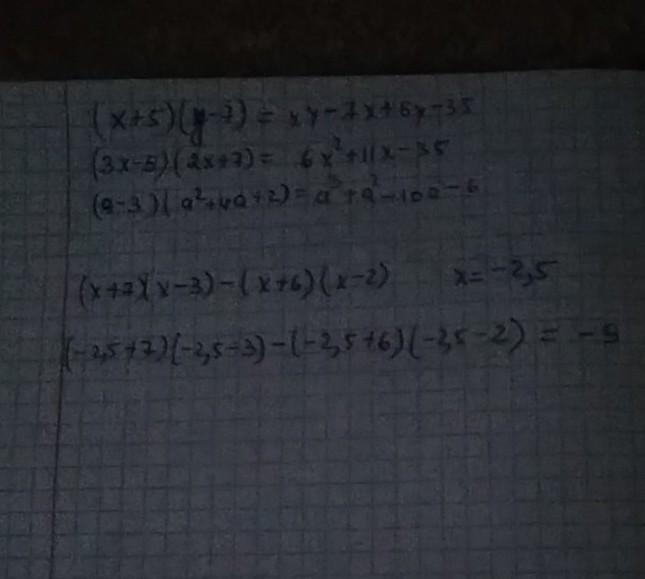 (x+5)(y-7) = xy-7x+5y-35
(3x-5)(2x+7) = 6x²+11x-35
(a-3)(a²+4a+2) = a³+a²-10a-6
(x+7)(x-3)-(x+6)(x-2) x=-2,5
(-2,5+7)(-2,5-3)-(-2,5+6)(-2,5-2) = -9